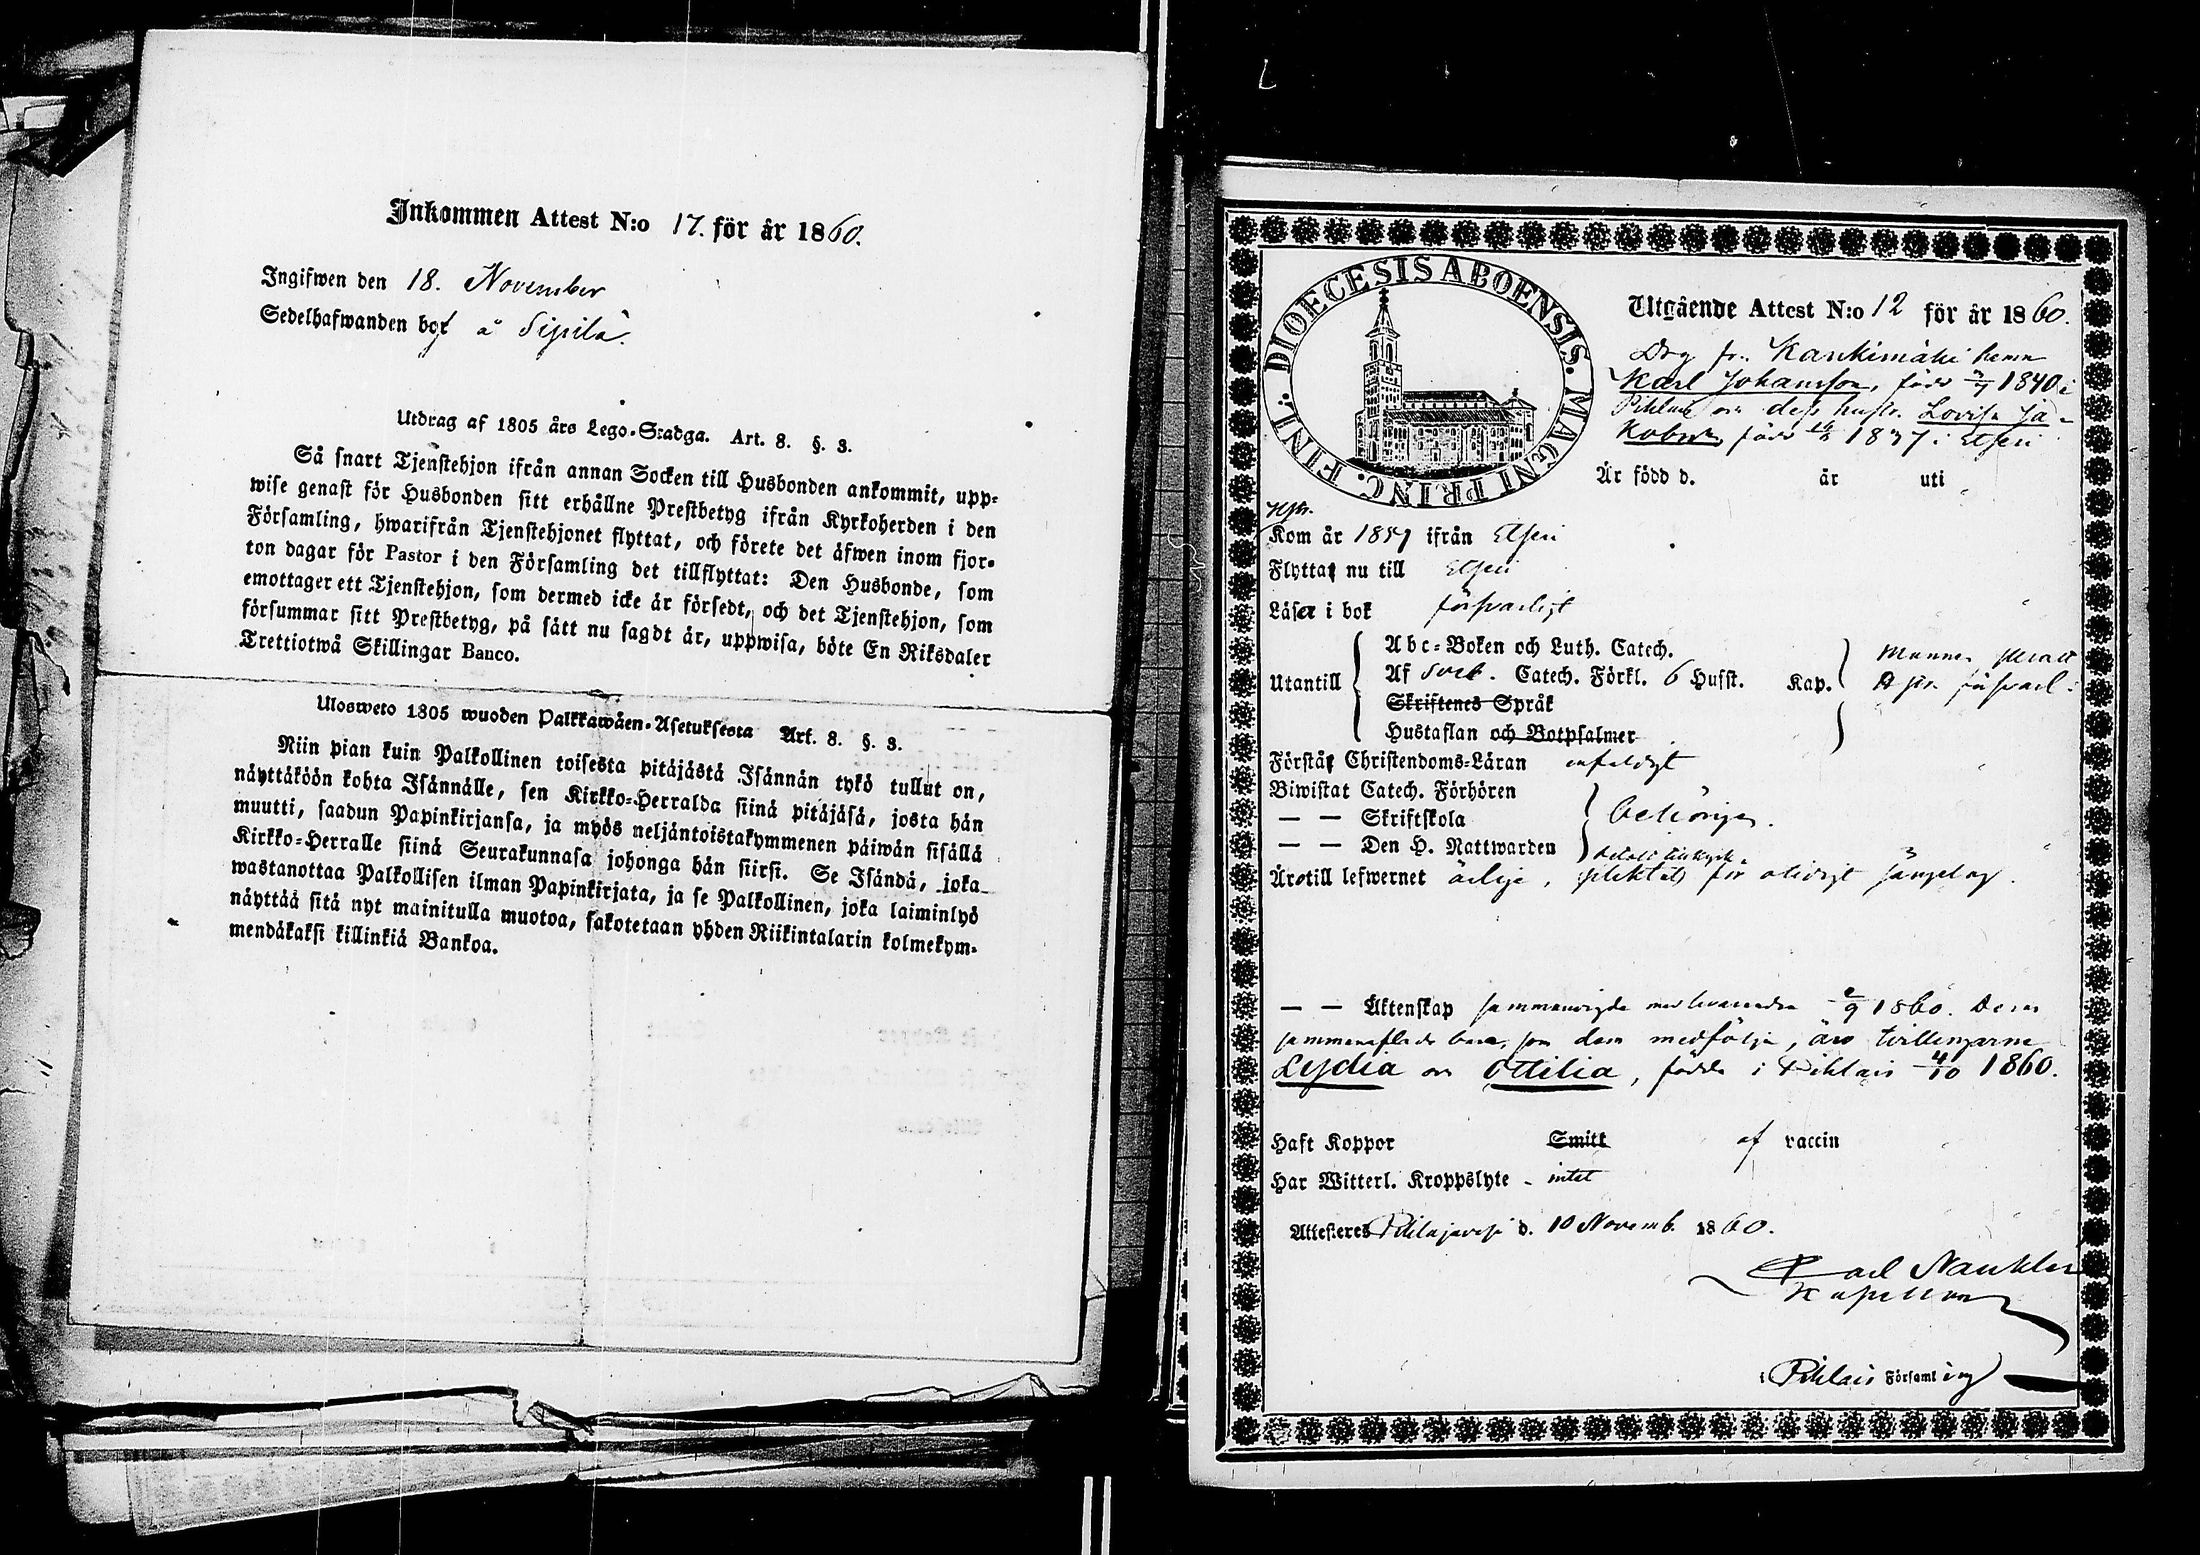 Inkommen Attest N:o 17. för år 1860.
Ingifwen den 18. November
Sedelhafwanden bor å Sipilä.
Utdrag af 1805 års Lego-Stadga. Art. 8. §. 3.
Så snart Tjenstehjon ifrån annan Socken till Husbonden ankommit, upp-
wise genast för Husbonden sitt erhållne Prestbetyg ifrån Kyrkoherden i den
Församling, hwarifrån Tjenstehjonet flyttat, och förete det äfwen inom fjor-
ton dagar för Pastor i den Församling det tillflyttat: Den Husbonde, som
emottager ett Tjenstehjon, som dermed icke är försedt, och det Tjenstehjon, som
försummar sitt Prestbetyg, på sätt nu sagdt är, uppwisa, böte En Riksdaler
Trettiotwå Skillingar Banco.
Ulosweto 1805 wuoden Palkkawäen-Asetuksesta Art. 8. §. 3.
Niin pian kuin Palkollinen toisesta pitäjästä Isännän tykö tullut on,
näyttäköön kohta Isännälle, sen Kirkko-Herralda siinä pitäjäsä, josta hän
muutti, saadun Papinkirjansa, ja myös neljäntoistakymmenen päiwän sisällä
Kirkko-Herralle siinä Seurakunnasa johonga hän siirsi. Se Isändä, joka
wastanottaa Palkollisen ilman Papinkirjata, ja se Palkollinen, joka laiminlyö
näyttää sitä nyt mainitulla muotoa, sakotetaan yhden Riikintalarin kolmekym-
mendäkaksi killinkiä Bankoa.
DIOECESIS ABOENSIS. MAGNI PRINC. FINL.
Utgående Attest N:o 12 för år 1860.
Drg fr. Kankimäki hemn
Karl Johansson, född 1840 i
Pihlais och dess hustr. Lovisa Ja-
kobsd. född 1837 i Etseri
Är född d. år uti
Hstr.
Kom år 1857 ifrån Etseri
Flyttar nu till Etseri
Läser i bok försvarligt
Abc-Boken och Luth. Catech.
Utantill Af Sveb. Catech. Förkl. 6 Husst. Kap. Mannen svagt
Skriftenes Språk Hstr. försvarl:
Hustaflan och Botpsalmer
Förstår Christendoms-Läran enfaldigt
Biwistat Catech. Förhören
— — Skriftskola behörigen.
— — Den H. Nattwarden
Är till lefwernet ärliga, pliktat för otidigt sängelag.
— — Äktenskap sammanvigda med hvarandra 1860. Deras
sammanaflade barn, som dem medfölja, äro tvillingarne
Lydia och Ottilia, födda i Pihlais 4/10 1860.
Haft Koppor Smitt af vaccin
Har Witterl. Kroppslyte - intet
Attesteres Pihlajavesi d. 10 Novemb. 1860.
Karl Nanklér
Kapellan
i Pihlais Församling